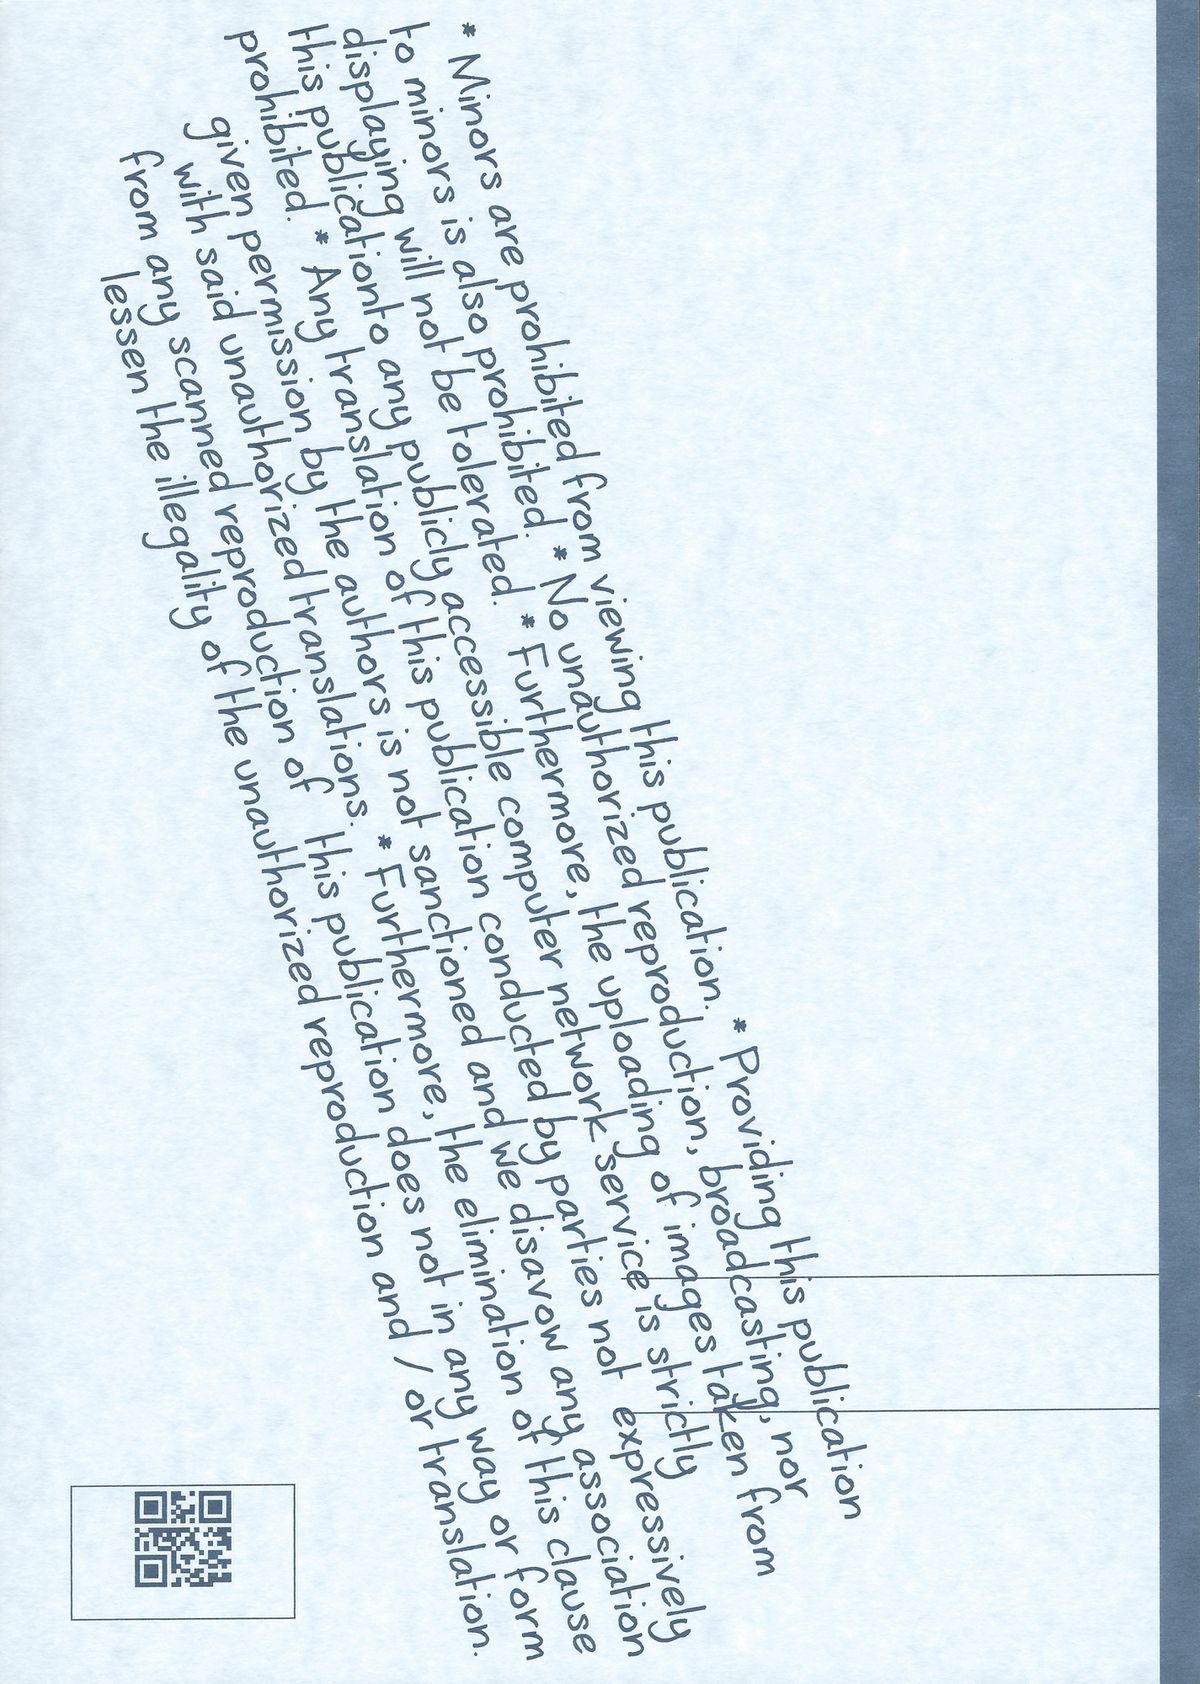 * Minors are prohibited from viewing this publication. * Providing this publication
to minors is also prohibited. * No unauthorized reproduction, broadcasting, nor
displaying will not be tolerated. * Furthermore, the uploading of images taken from
this publicationto any publicly accessible computer network service is strictly
prohibited. * Any translation of this publication conducted by parties not expressively
given permission by the authors is not sanctioned and we disavow any association
with said unauthorized translations. * Furthermore, the elimination of this clause
from any scanned reproduction of this publication does not in any way or form
lessen the illegality of the unauthorized reproduction and / or translation.